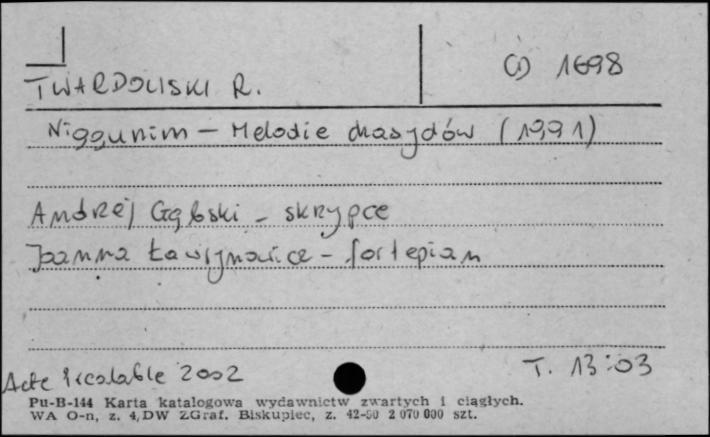 TWARDOWSKI R.
CD 1698
Niggunim – Melodie chasydów (1991)
Andrzej Gębski – skrzypce
Joanna Ławrynowicz – fortepian
Acte Préalable 2002
T. 13:03
Pu-B-144 Karta katalogowa wydawnictw zwartych i ciągłych.
WA O-n, z. 4, DW ZGraf. Biskupiec, z. 42-90 2 070 000 szt.